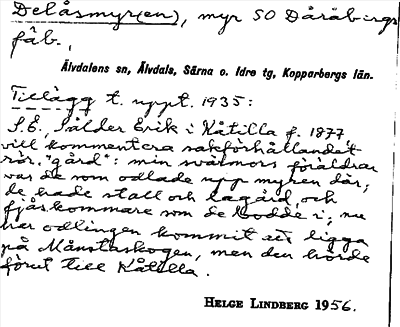 Delåsmyr(en), myr SO Dåråbergs
fäb.,
Älvdalens sn, Älvdals, Särna o. Idre tg, Kopparbergs län.
Tillägg t. uppt. 1935:
S.E., Sålder Erik i Kåtilla f. 1877
vill kommentera sakförhållandet
rör. "gård": min svärmors föräldrar
var de som odlade upp myren där;
de hade stall och lagård, och
fjåskommare som de bodde i; nu
har odlingen kommit att ligga
på Månstaskogen, men den hörde
förut till Kåtilla.
HELGE LINDBERG 1956.